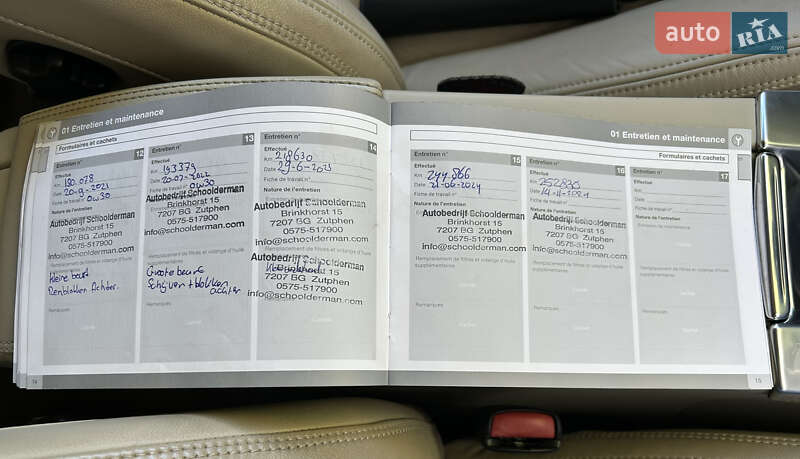 auto RIA
01 Entretien et maintenance
Formulaires et cachets
Entretien n°
12
Effectué
Km 180.078
Date 20-9-2021
Fiche de travail n° 0w30
Nature de l'entretien
Autobedrijf Schoolderman
Brinkhorst 15
7207 BG Zutphen
0575-517900
info@schoolderman.com
Kleine beurt
Remblokken Achter.
Remarques
Cachet
Entretien n°
13
Effectué
Km 193379
Date 20-07-2022
Fiche de travail n° 0w30
Autobedrijf Schoolderman
Brinkhorst 15
7207 BG Zutphen
0575-517900
info@schoolderman.com
Grote beurt
Schijven + blokken
achter
Remarques
Cachet
Entretien n°
14
Effectué
Km 218630
Date 29-6-2023
Fiche de travail n°
Nature de l'entretien
Autobedrijf Schoolderman
Brinkhorst 15
7207 BG Zutphen
0575-517900
info@schoolderman.com
Remplacement de filtres et vidange d'huile
Autobedrijf Schoolderman
7207 BG Zutphen
0575-517900
info@schoolderman.com
Cachet
14
01 Entretien et maintenance
Formulaires et cachets
Entretien n°
15
Effectué
Km 244.866
Date 21-06-2024
Fiche de travail n°
Nature de l'entretien
Autobedrijf Schoolderman
Brinkhorst 15
7207 BG Zutphen
0575-517900
info@schoolderman.com
Remplacement de filtres et vidange d'huile
supplémentaires
Remarques
Cachet
Entretien n°
16
Effectué
Km 252830
Date
Fiche de travail n°
Nature de l'entretien
Autobedrijf Schoolderman
Brinkhorst 15
7207 BG Zutphen
0575-517900
info@schoolderman.com
Remplacement de filtres et vidange d'huile
supplémentaires
Remarques
Cachet
Entretien n°
17
Effectué
Km
Date
Fiche de travail n°
Nature de l'entretien
Entretien de maintenance
Remplacement de filtres et vidange d'huile
supplémentaires
Cachet
Remarques
Cachet
15